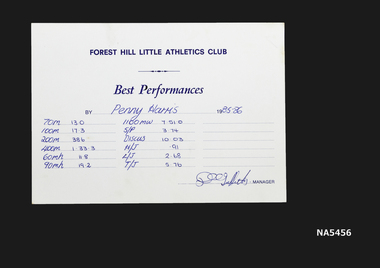 FOREST HILL LITTLE ATHLETICS CLUB
Best Performances
BY Penny Harris 1985-86
70m 13.0 1100mw 7 51.0
100m 17.3 S/P 3.74
200m 38.6 Discus 10.03
400m 1.33.3 H/J .91
60mh 11.8 L/J 2.68
90mh 19.2 T/J 5.76
MANAGER
NA5456